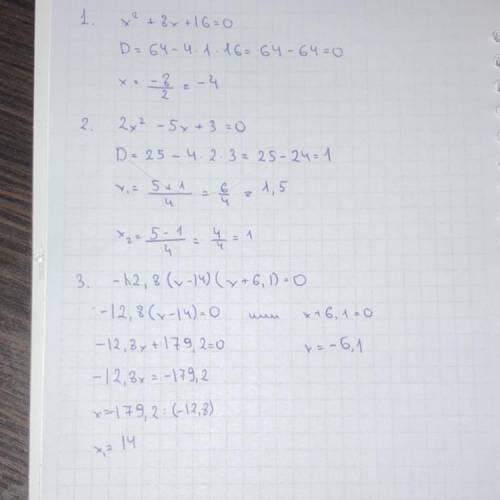 1. x² + 8x + 16 = 0
D = 64 - 4 · 1 · 16 = 64 - 64 = 0
x = -8/2 = -4
2. 2x² - 5x + 3 = 0
D = 25 - 4 · 2 · 3 = 25 - 24 = 1
x₁ = 5+1/4 = 6/4 = 1,5
x₂ = 5-1/4 = 4/4 = 1
3. -12,8(x-14)(x+6,1)=0
-12,8(x-14)=0 или x+6,1=0
-12,8x+179,2=0 x=-6,1
-12,8x=-179,2
x=-179,2:(-12,8)
x₁=14